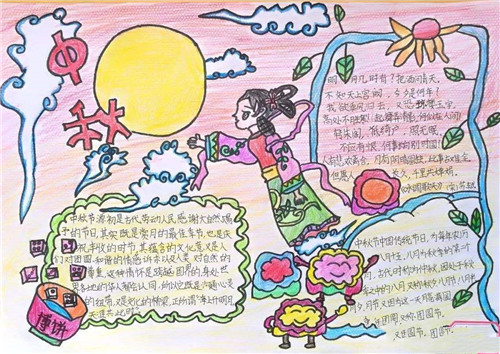 中秋
明月几时有？把酒问青天。
不知天上宫阙，今夕是何年？
我欲乘风归去，又恐琼楼玉宇，
高处不胜寒！起舞弄清影，何似在人间！
转朱阁，低绮户，照无眠。
不应有恨，何事长向别时圆！
人有悲欢离合，月有阴晴圆缺，此事古难全。
但愿人长久，千里共婵娟。
《水调歌头》宋 苏轼
中秋节源初是古代劳动人民感谢大自然赐
予的节日，其实既是赏月的最佳季节，也是庆
祝丰收的时节，其蕴含的文化意义是人
们对团圆、和谐的情感诉求以及人类对自然的
尊重，这种情怀是跨越国界的，身处世
界各地的华人都会认同，所以它既是心灵
的纽带，又是文化的桥梁，正所谓“海上升明月
天涯共此时”。
博饼
中秋节中国传统节日，为每年农历
八月十五，八月为秋季的第二个
月，古代时称为仲秋，因处于秋
季之中和八月
月夕，月节，又因为这一天月亮满圆
团圆，又称团圆节